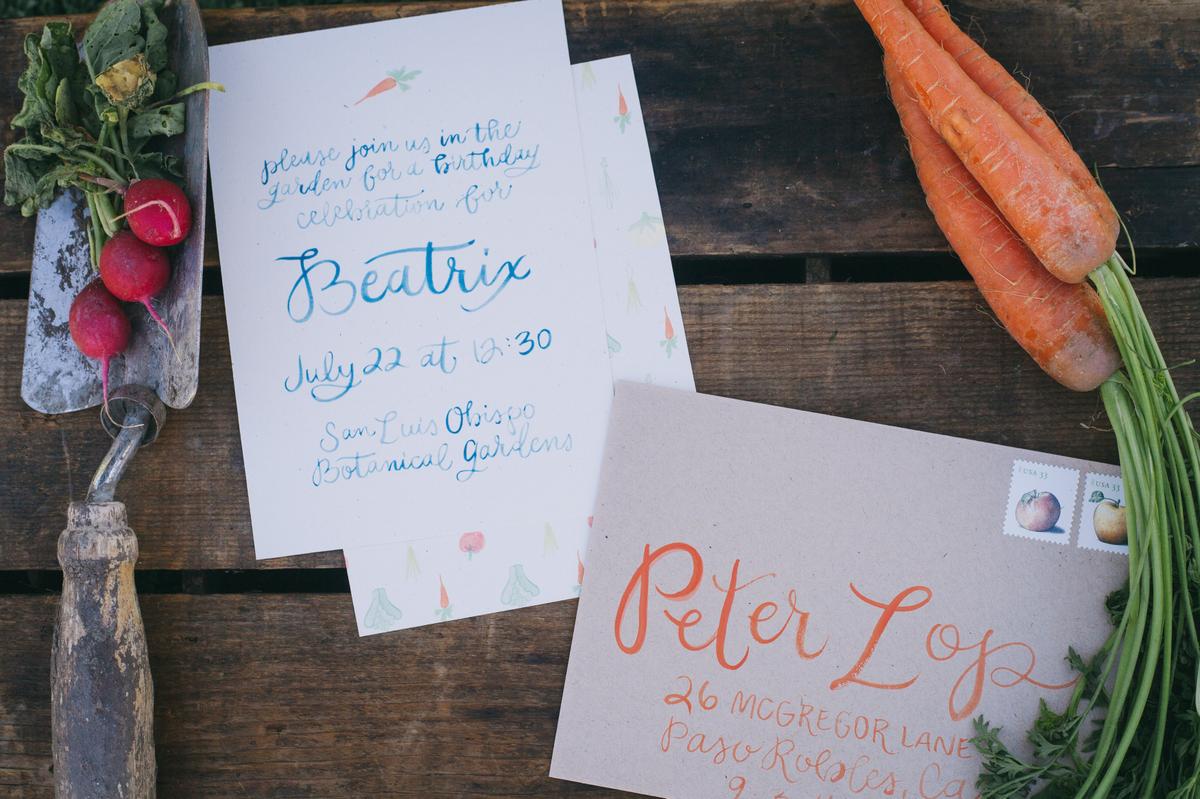 please join us in the
garden for a birthday
celebration for
Beatrix
July 22 at 12:30
San Luis Obispo
Botanical Gardens
USA 33
USA 33
Peter Lop
26 MCGREGOR LANE
Paso Robles, Ca